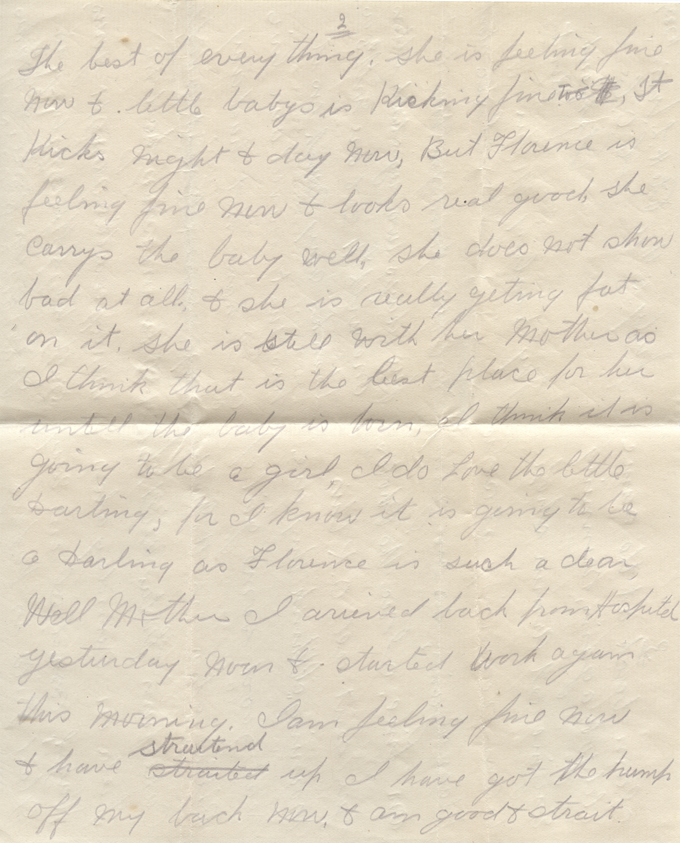 2
The best of everything. she is feeling fine
now & little babys is Kicking fine, It
Kicks night & day now, But Florence is
feeling fine now & looks real good, she
carrys the baby well, she does not show
bad at all, & she is really geting fat
on it. she is still with her Mother as
I think that is the best place for her
untill the baby is born, I think it is
going to be a girl, I do Love the little
Darling, for I know it is going to be
a Darling as Florence is such a dear,
Well Mother I arieved back from Hospital
yesterday noon & started work again
this morning. I am feeling fine now
straitend
& have straited up I have got the hump
off my back now, & am good & strait.